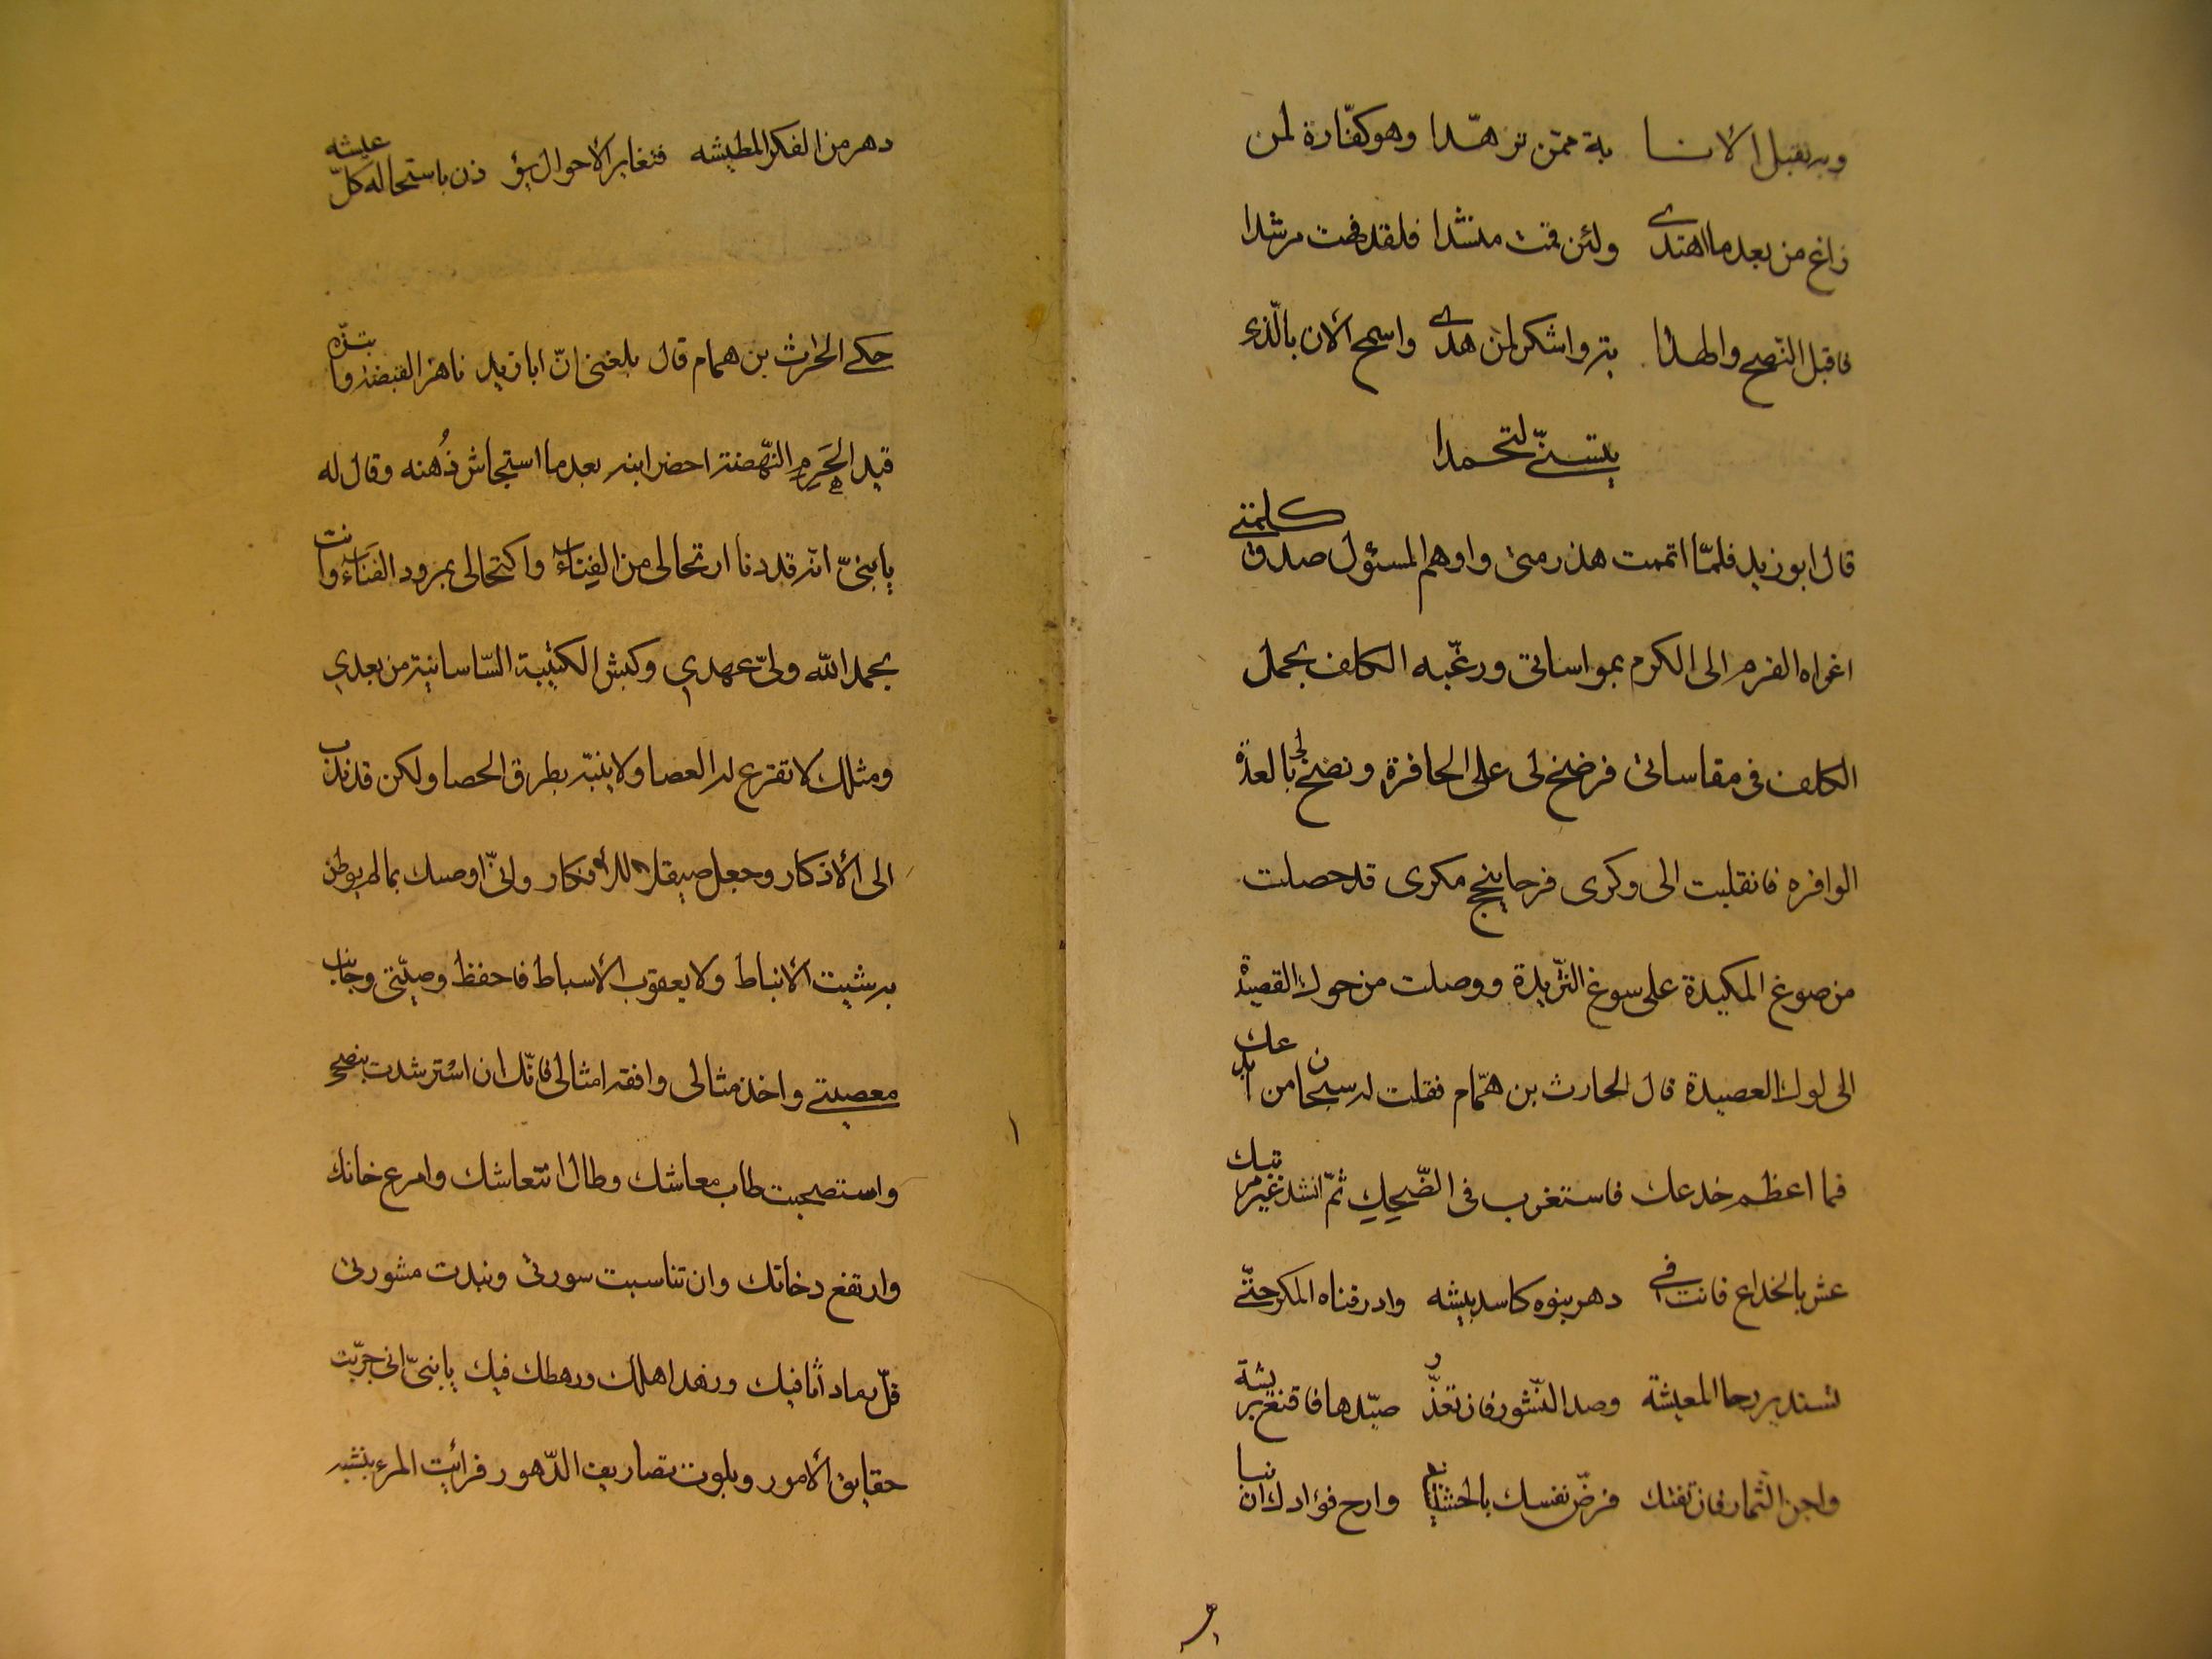 وبه تقبل الانا بة ممن تزهّدا وهو كفّارة لمن
زاغ من بعد ما اهتدى ولئن قمت منشدا فلقد فهت مرشدا
فاقبل النّصح والهدا ية واشكر لمن هدى واسمح الان بالّذى
يتسنّى لتحمدا
قال ابو زيد فلمّا اتممت هذرمتى واوهم المسئول صدق كلمتى
اغراه القرم الى الكرم بمواساتى ورغّبه الكلف بحمل
الكلف فى مقاساتى فرضخ لى على الحافرة ونضح لى بالعدة
الوافره فانقلبت الى وكرى فرحا بنجح مكرى قد حصلت
من صوغ المكيدة على سوغ الثّريدة ووصلت من حوك القصيدة
الى لوك العصيدة قال الحارث بن همّام فقلت له سبحان من ابدعك
فما اعظم خدعك فاستغرب فى الضّحك ثمّ انشد غير مرتبك
عش بالخداع فانت فى دهر بنوه كاسد بيشه وادر قناه المكر حتّى
تستدير رحا المعيشة وصد النّسور فان تعذّر صيدها فاقنع بريشة
واجن الثمار فان تفتك فرضّ نفسك بالحشيشه وارح فؤادك ان نبا
دهر من الفكر المطيشه فتغاير الأحوال يؤ ذن باستحاله كلّ عيشه
حكى الحرث بن همام قال بلغنى انّ ابا زيد ناهز القبضه وابتزّه
قيد الهرم النّهضة احضر ابنه بعد ما استجاش ذهنه وقال له
يا بنىّ انّه قد دنا ارتحالى من الفناء واكتحالى بمرود الفناء وانت
بحمد الله ولىّ عهدى وكبش الكتيبة السّاسانية من بعدى
ومثلك لا تقرع له العصا ولا ينبّه بطرق الحصا ولكن قد ندب
الى الأذكار وجعل صيقلا للأفكار وانّى اوصيك بما لم يوص
به شيث الأنباط ولا يعقوب الأسباط فاحفظ وصيّتى وجانب
معصيتى واحذ مثالى وافقه امثالى فانّك ان استرشدت بنصحى
واستصبحت طاب معاشك وطال انتعاشك وامرع خانك
وارتفع دخانك وان تناسيت سورتى ونبذت مشورتى
قلّ رماد اثافيك وزهد اهلك ورهطك فيك يا بنىّ انى جرّبت
حقايق الأمور وبلوت تصاريف الدّهور فرأيت المرء بنشبه